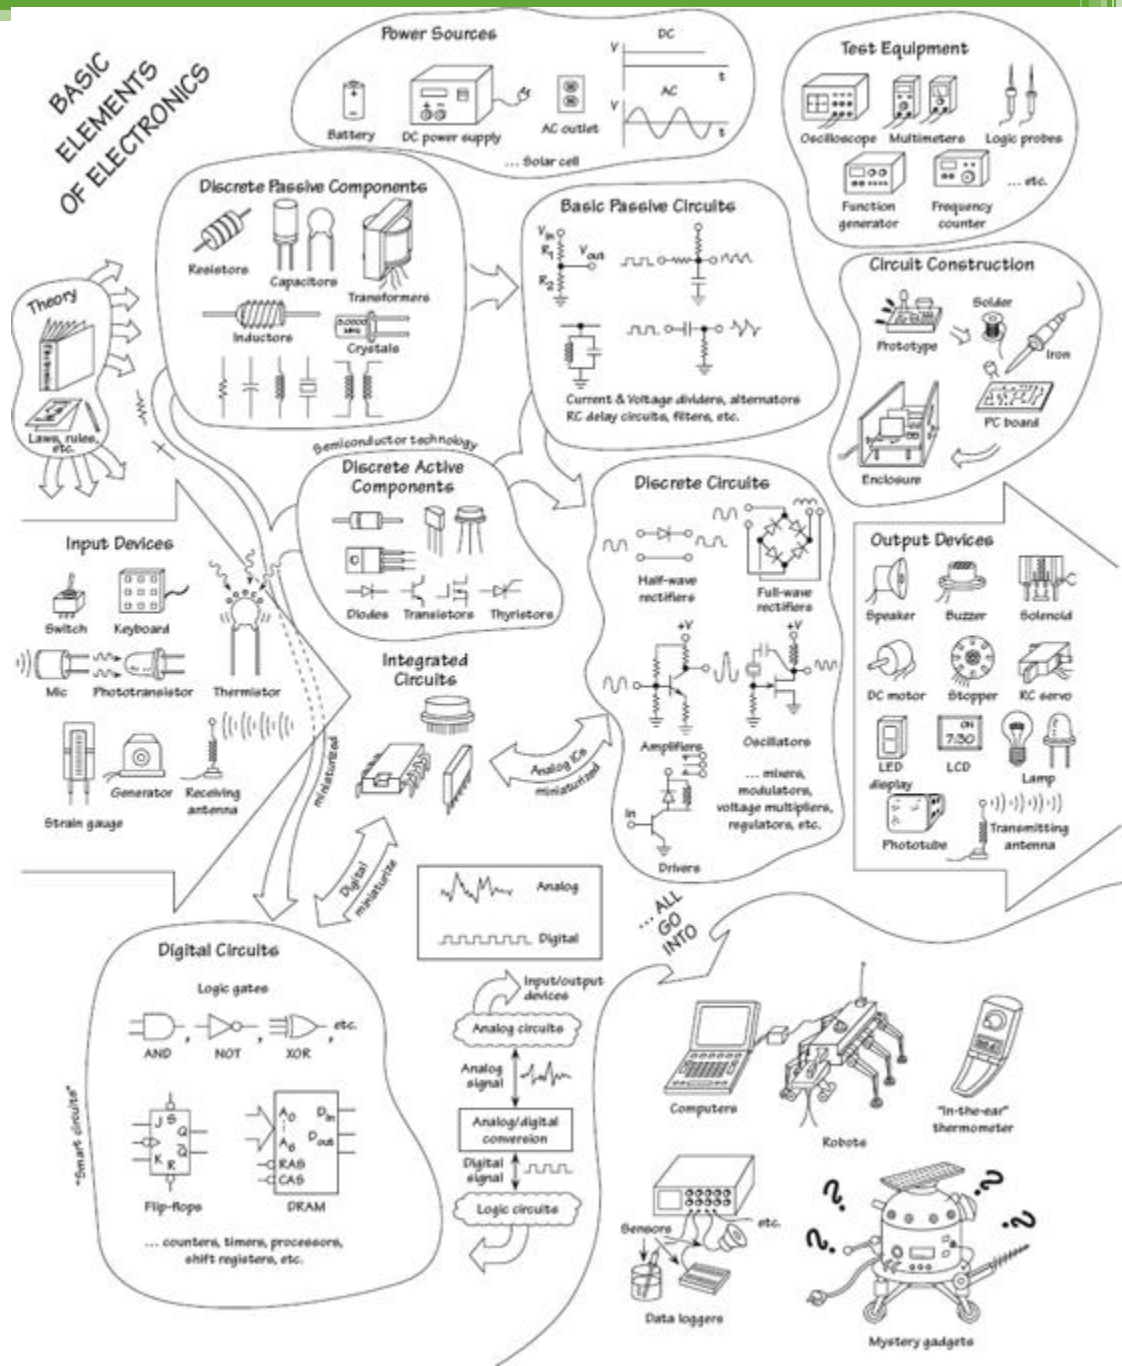 BASIC
ELEMENTS
OF ELECTRONICS
Power Sources
Battery
DC power supply
AC outlet
... Solar cell
DC
V
t
AC
V
t
Test Equipment
Oscilloscope
Multimeters
Logic probes
Function
generator
Frequency
counter
... etc.
Discrete Passive Components
Resistors
Capacitors
Transformers
Inductors
Crystals
Theory
Electronics
Laws, rules,
etc.
Basic Passive Circuits
Vin
R1
R2
Vout
Current & Voltage dividers, alternators
RC delay circuits, filters, etc.
Circuit Construction
Prototype
Solder
Iron
PC board
Enclosure
Semiconductor technology
Discrete Active
Components
Diodes
Transistors
Thyristors
Discrete Circuits
Half-wave
rectifiers
Full-wave
rectifiers
+V
+V
Amplifiers
Oscillators
In
Drivers
... mixers,
modulators,
voltage multipliers,
regulators, etc.
Input Devices
Switch
Keyboard
Mic
Phototransistor
Thermistor
Strain gauge
Generator
Receiving
antenna
miniaturized
Integrated
Circuits
Analog ICs
miniaturized
Digital
miniaturize
Output Devices
Speaker
Buzzer
Solenoid
DC motor
Stopper
RC servo
LED
display
ON
7:30
LCD
Lamp
Phototube
Transmitting
antenna
Analog
Digital
... ALL
GO
INTO
Digital Circuits
Logic gates
AND
,
NOT
,
XOR
,
etc.
"Smart circuits"
J
S
Q
K
R
Q
Flip-flops
A0
A6
RAS
CAS
Din
Dout
DRAM
... counters, timers, processors,
shift registers, etc.
Input/output
devices
Analog circuits
Analog
signal
Analog/digital
conversion
Digital
signal
Logic circuits
Computers
Robots
"In-the-ear"
thermometer
Sensors
etc.
Data loggers
?
?
?
?
Mystery gadgets